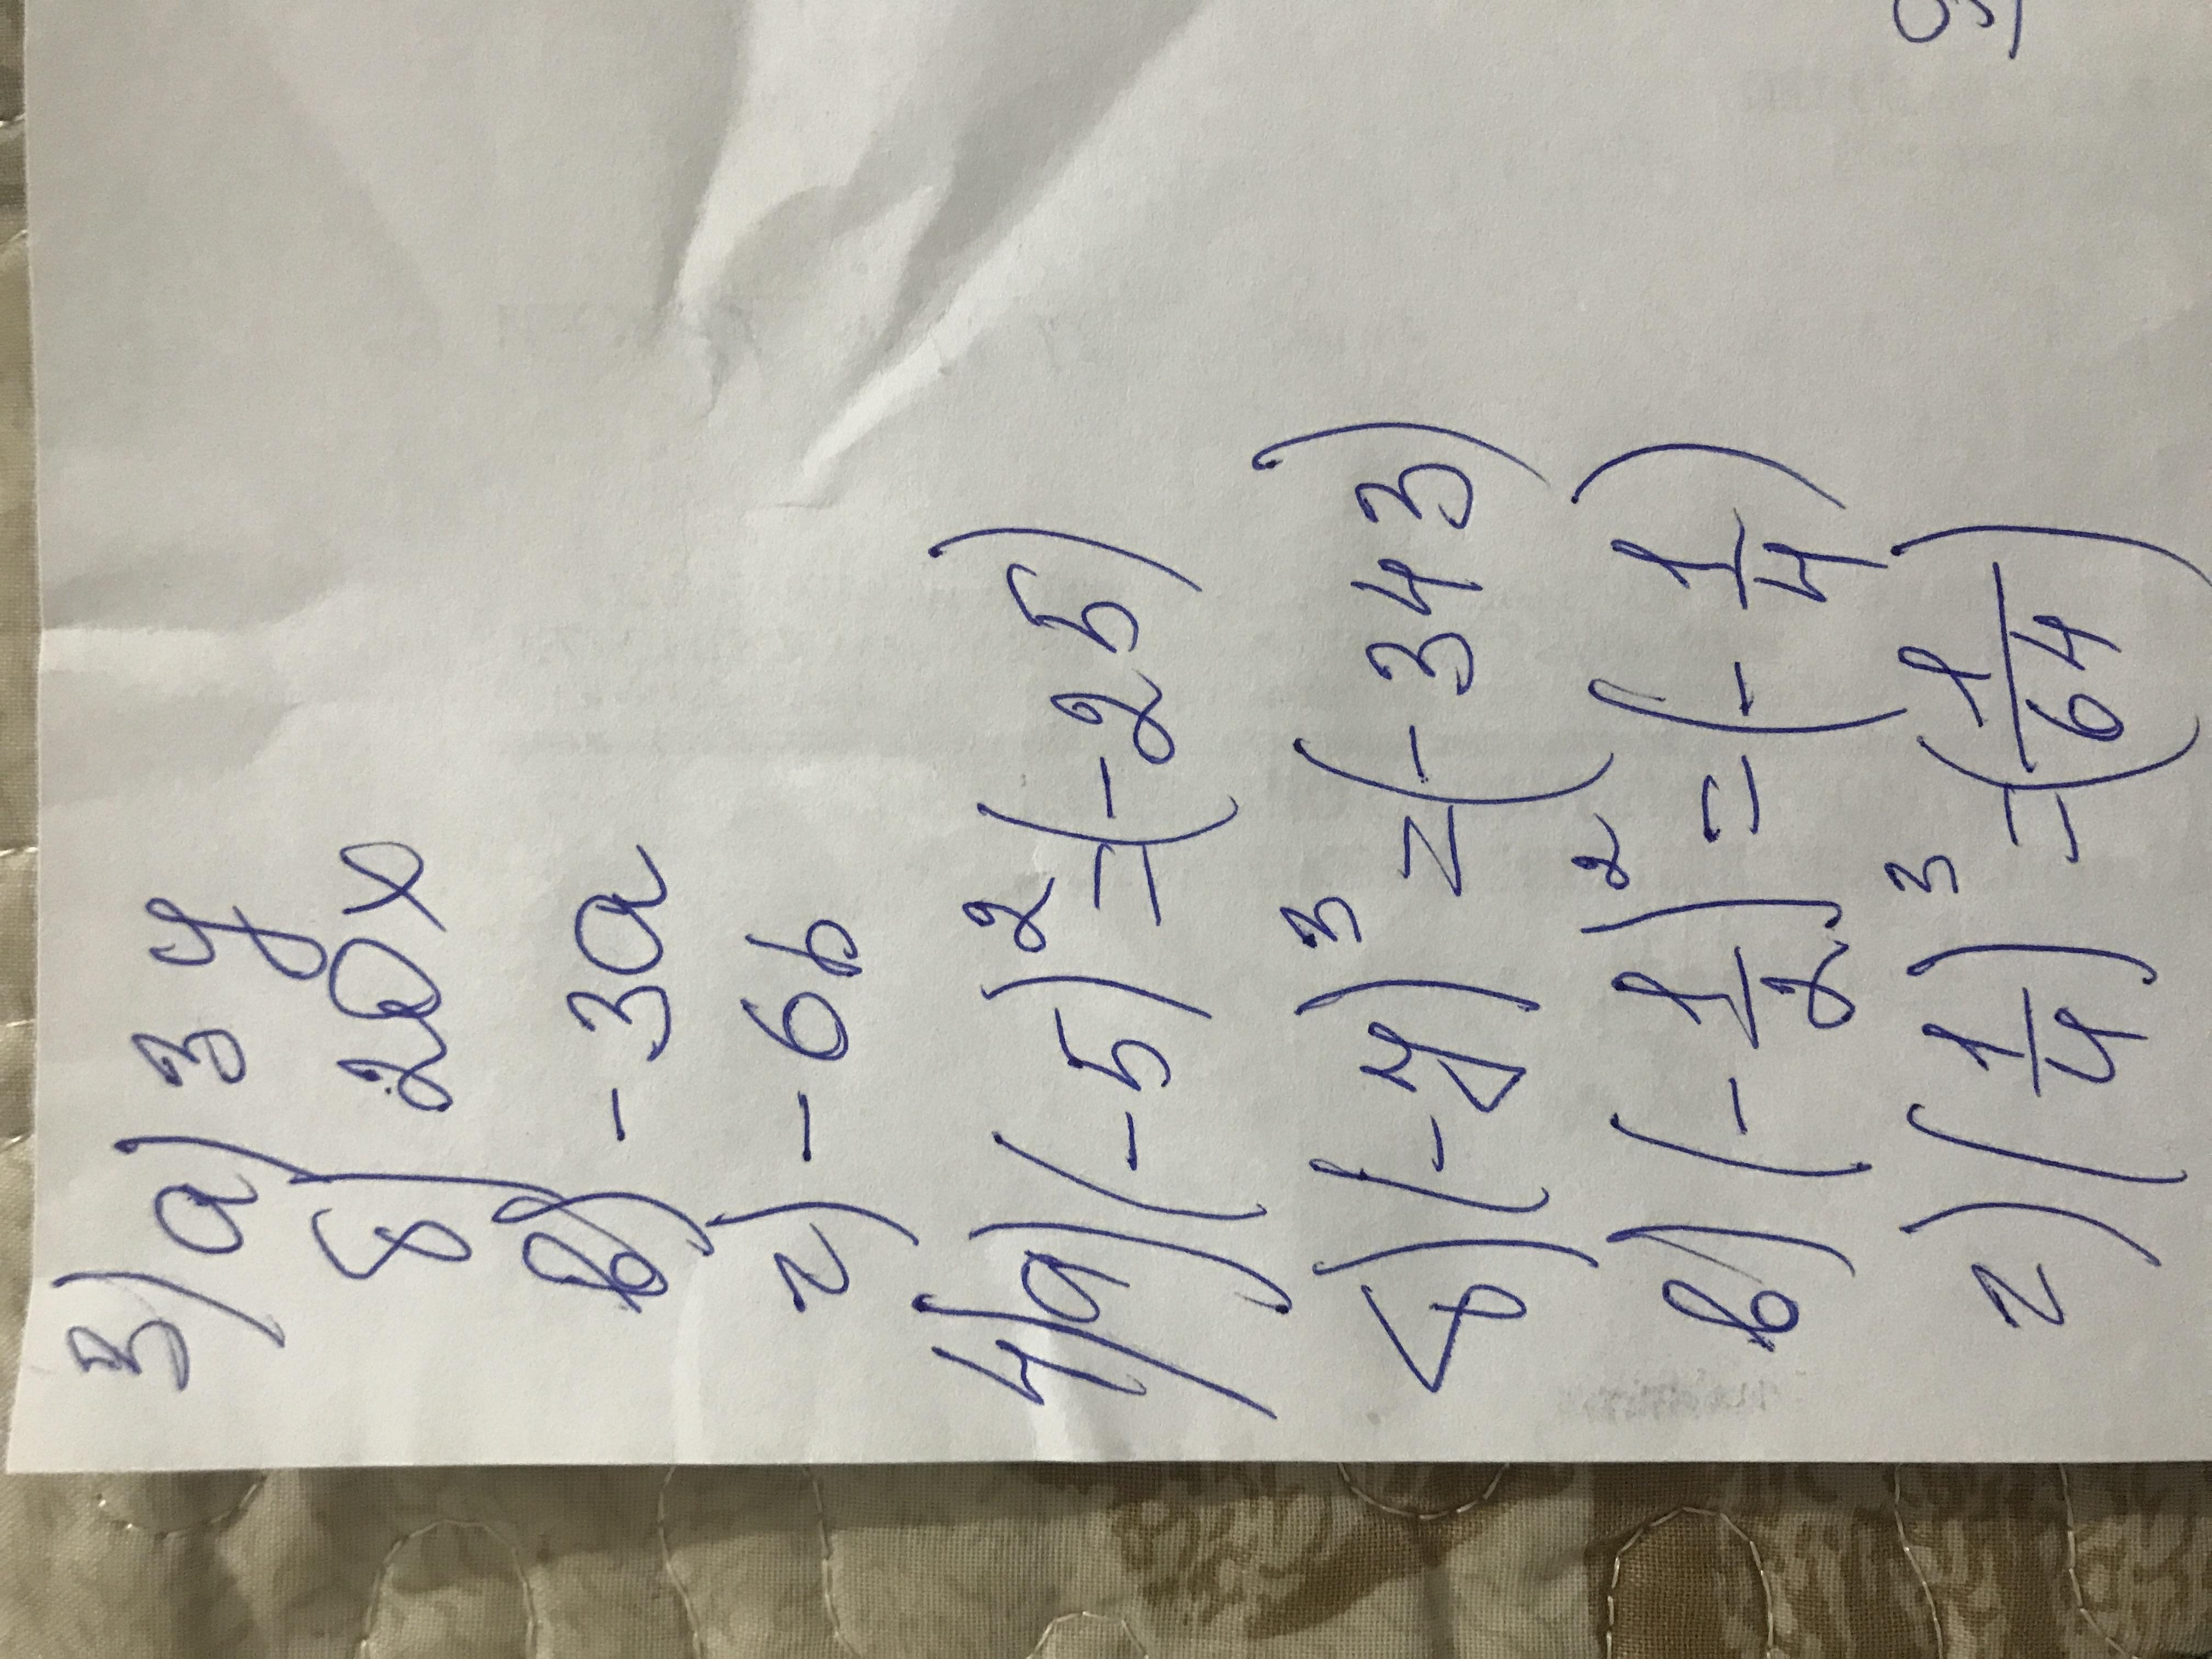 3) а) 3y
б) 20x
в) -3a
г) -6b
4) а) (-5)² = (-25)
б) (-7)³ = (-343)
в) (-1/2)² = (-1/4)
г) (1/4)³ = (1/64)